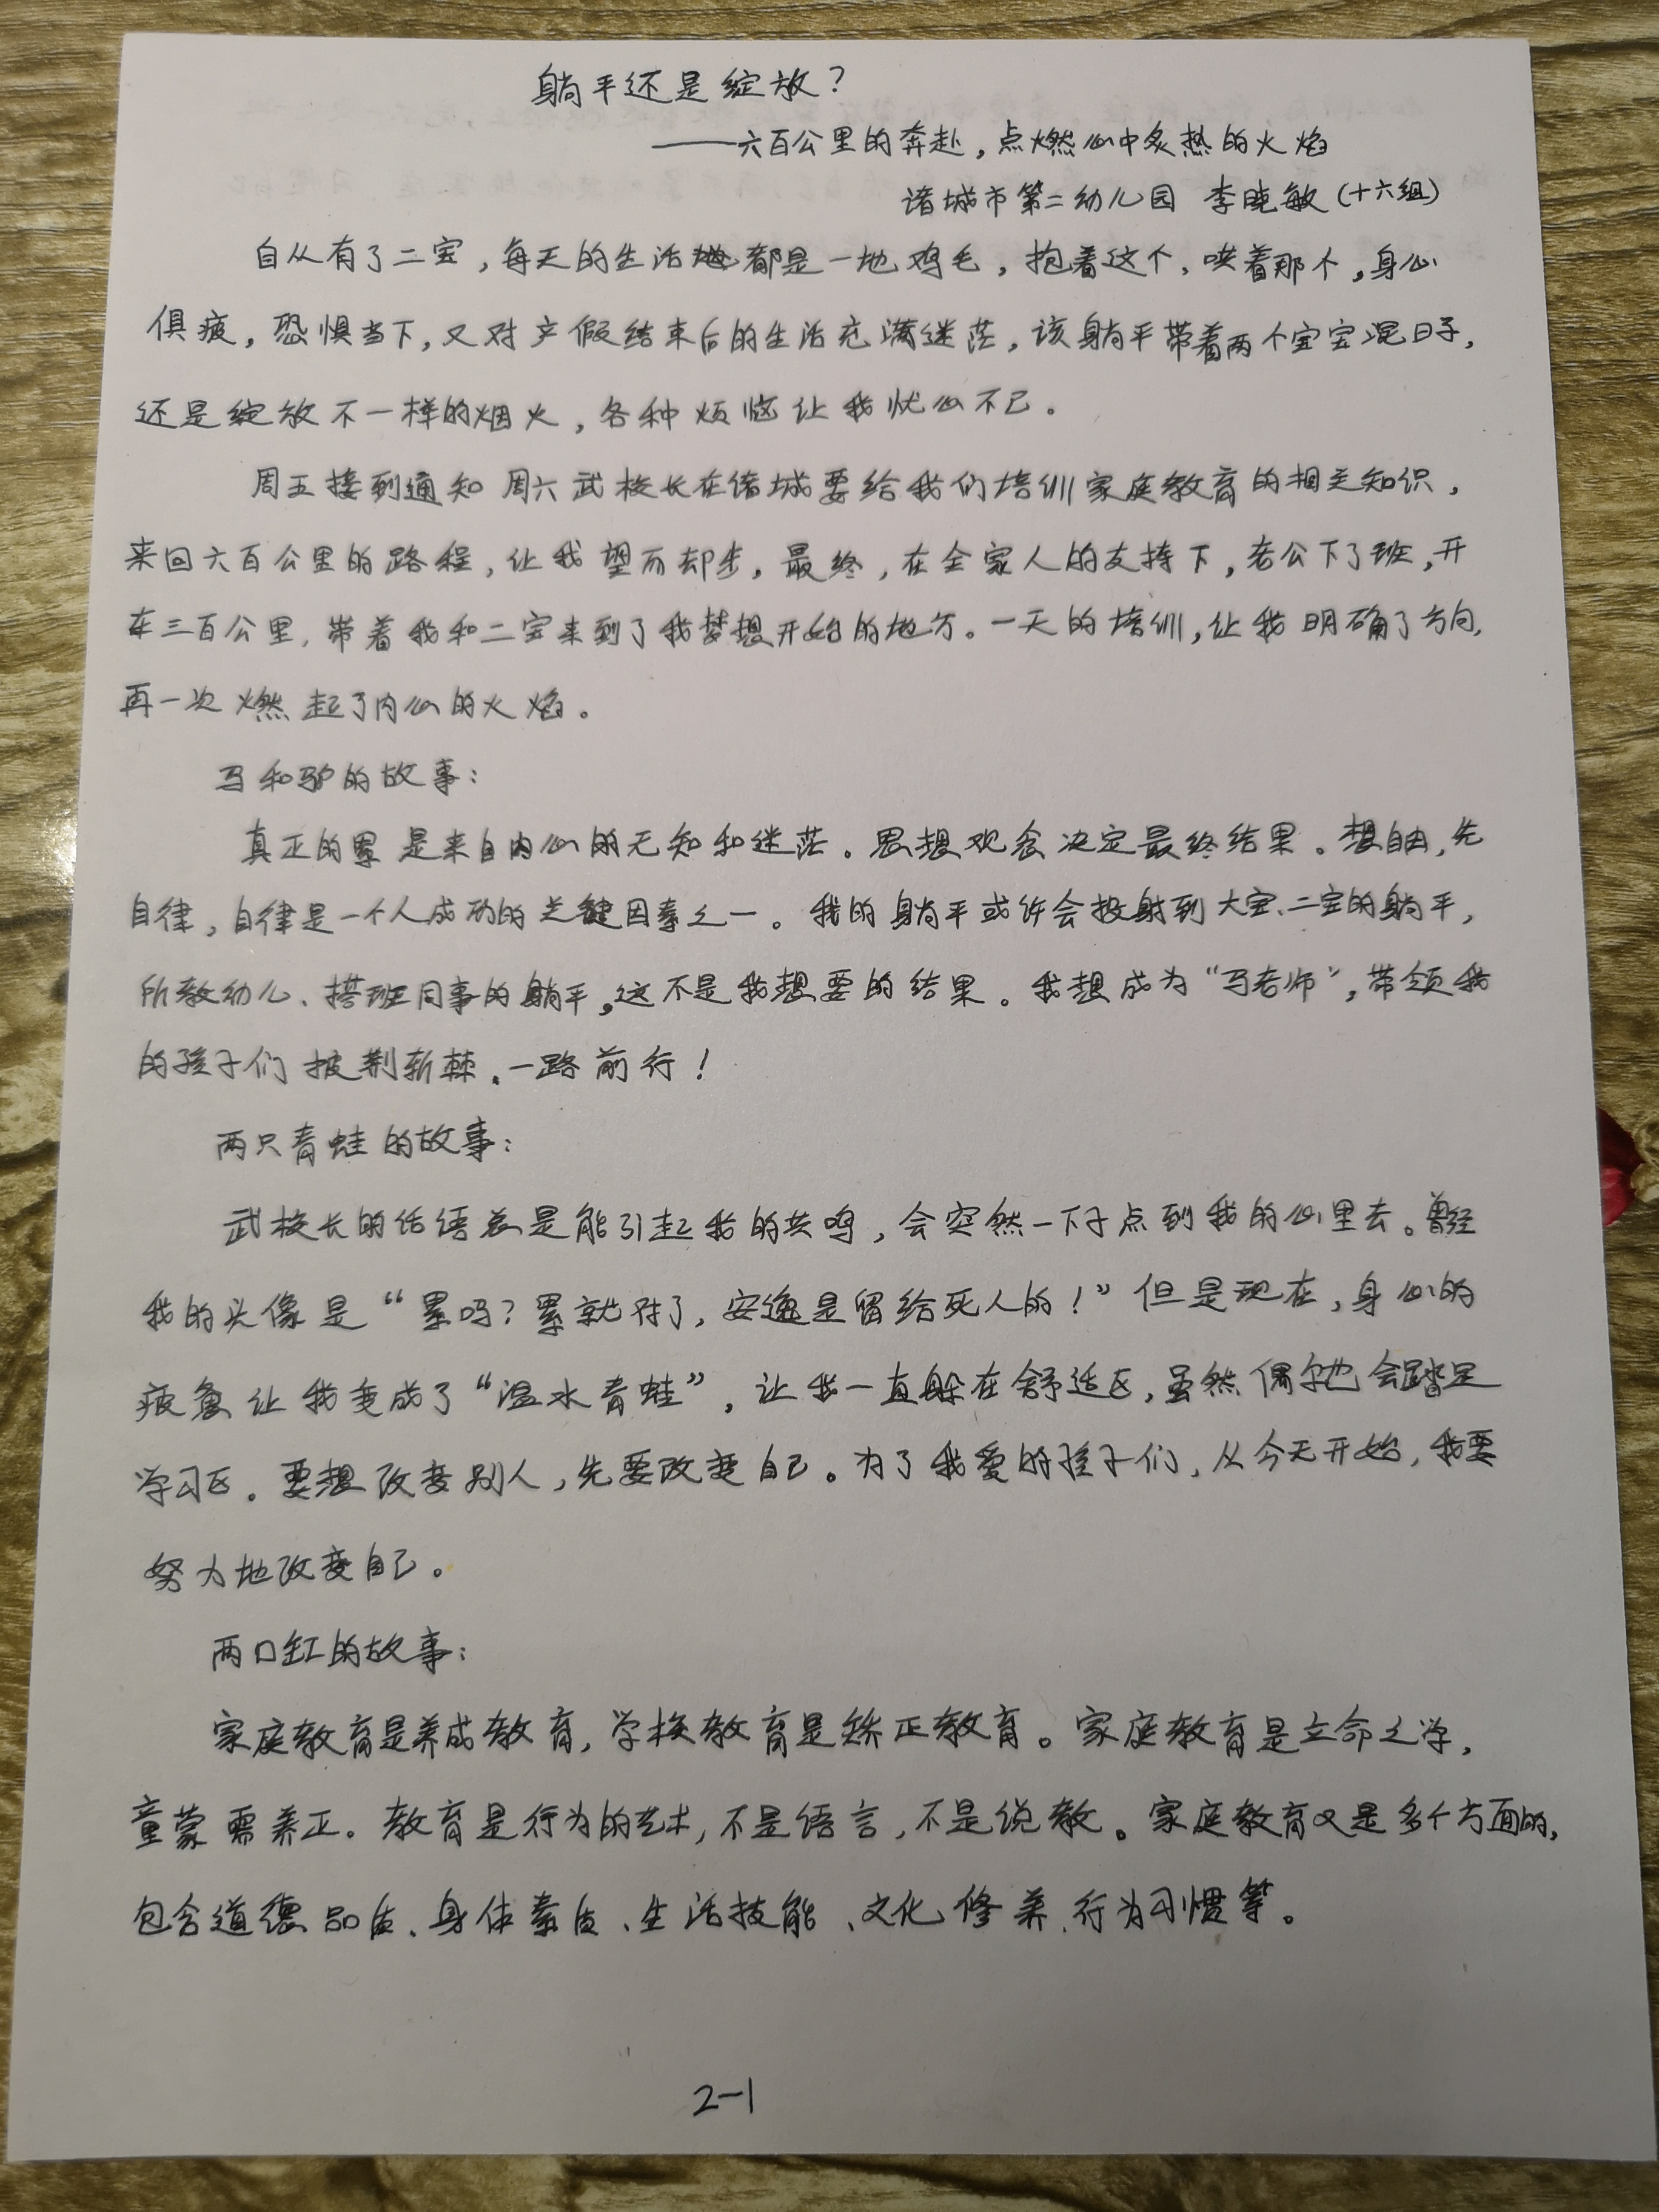 躺平还是绽放？
——六百公里的奔赴，点燃心中炙热的火焰
诸城市第二幼儿园 李晓敏(十六组)
自从有了二宝，每天的生活都是一地鸡毛，抱着这个、哄着那个，身心
俱疲，恐惧当下，又对产假结束后的生活充满迷茫，该躺平带着两个宝宝混日子，
还是绽放不一样的烟火，各种烦恼让我忧心不已。
周五接到通知 周六武校长在诸城要给我们培训家庭教育的相关知识，
来回六百公里的路程，让我望而却步，最终，在全家人的支持下，老公下了班，开
车三百公里，带着我和二宝来到了我梦想开始的地方。一天的培训，让我明确了方向，
再一次燃起了内心的火焰。
马和驴的故事：
真正的累是来自内心的无知和迷茫。思想观念决定最终结果。想自由，先
自律，自律是一个人成功的关键因素之一。我的躺平或许会投射到大宝、二宝的躺平，
所教幼儿、搭班同事的躺平，这不是我想要的结果。我想成为“马老师”，带领我
的孩子们披荆斩棘、一路前行！
两只青蛙的故事：
武校长的话语总是能引起我的共鸣，会突然一下子点到我的心里去。曾经
我的头像是“累吗？累就对了，安逸是留给死人的！”但是现在，身心的
疲惫让我变成了“温水青蛙”，让我一直躲在舒适区，虽然偶尔也会踏足
学习区。要想改变别人，先要改变自己。为了我爱的孩子们，从今天开始，我要
努力地改变自己。
两口缸的故事：
家庭教育是养成教育，学校教育是矫正教育。家庭教育是立命之学，
童蒙需养正。教育是行为的艺术，不是语言，不是说教。家庭教育又是多个方面的，
包含道德品质、身体素质、生活技能、文化修养、行为习惯等。
2-1